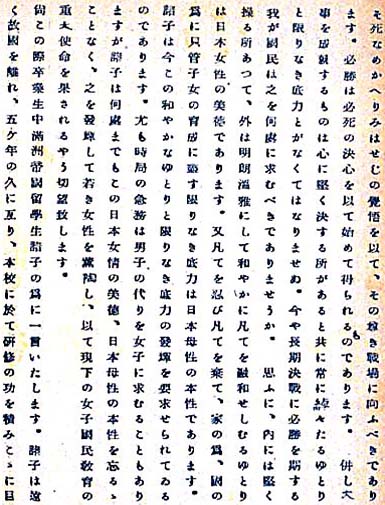 そ死なめかへりみはせじの覺悟を以て、その尊き戰場に向ふべきであり
ます。必勝は必死の決心を以て始めて得られるものであります。併し大
事を成就するものは心に堅く決する所があると共に常に綽々たるゆとり
と限りなき底力とがなくてはなりませぬ。今や長期決戰に必勝を期する
我が國民は之を何處に求むべきでありませうか。思ふに、內には堅く
操る所あつて、外は明朗溫雅にして和やかに凡てを融和せしむるゆとり
は日本女性の美德であります。又凡てを忍び凡てを棄て、家の爲、國の
爲に只管子女の育成に盡す限りなき底力は日本母性の本性であります。
諸子は今この和やかなゆとりと限りなき底力の發揮を要求せられてゐる
のであります。尤も時局の急務は男子の代りを女子に求むることもあり
ますが諸子は何處までもこの日本女情の美德、日本母性の本性を忘るゝ
ことなく、之を發揮して若き女性を薰陶し、以て現下の女子國民敎育の
重大使命を果されるやう切望致します。
尙この際卒業生中滿洲帝國留學生諸子の爲に一言いたします。諸子は遠
く故國を離れ、五ケ年の久に亙り、本校に於て硏修の功を積みこゝに目